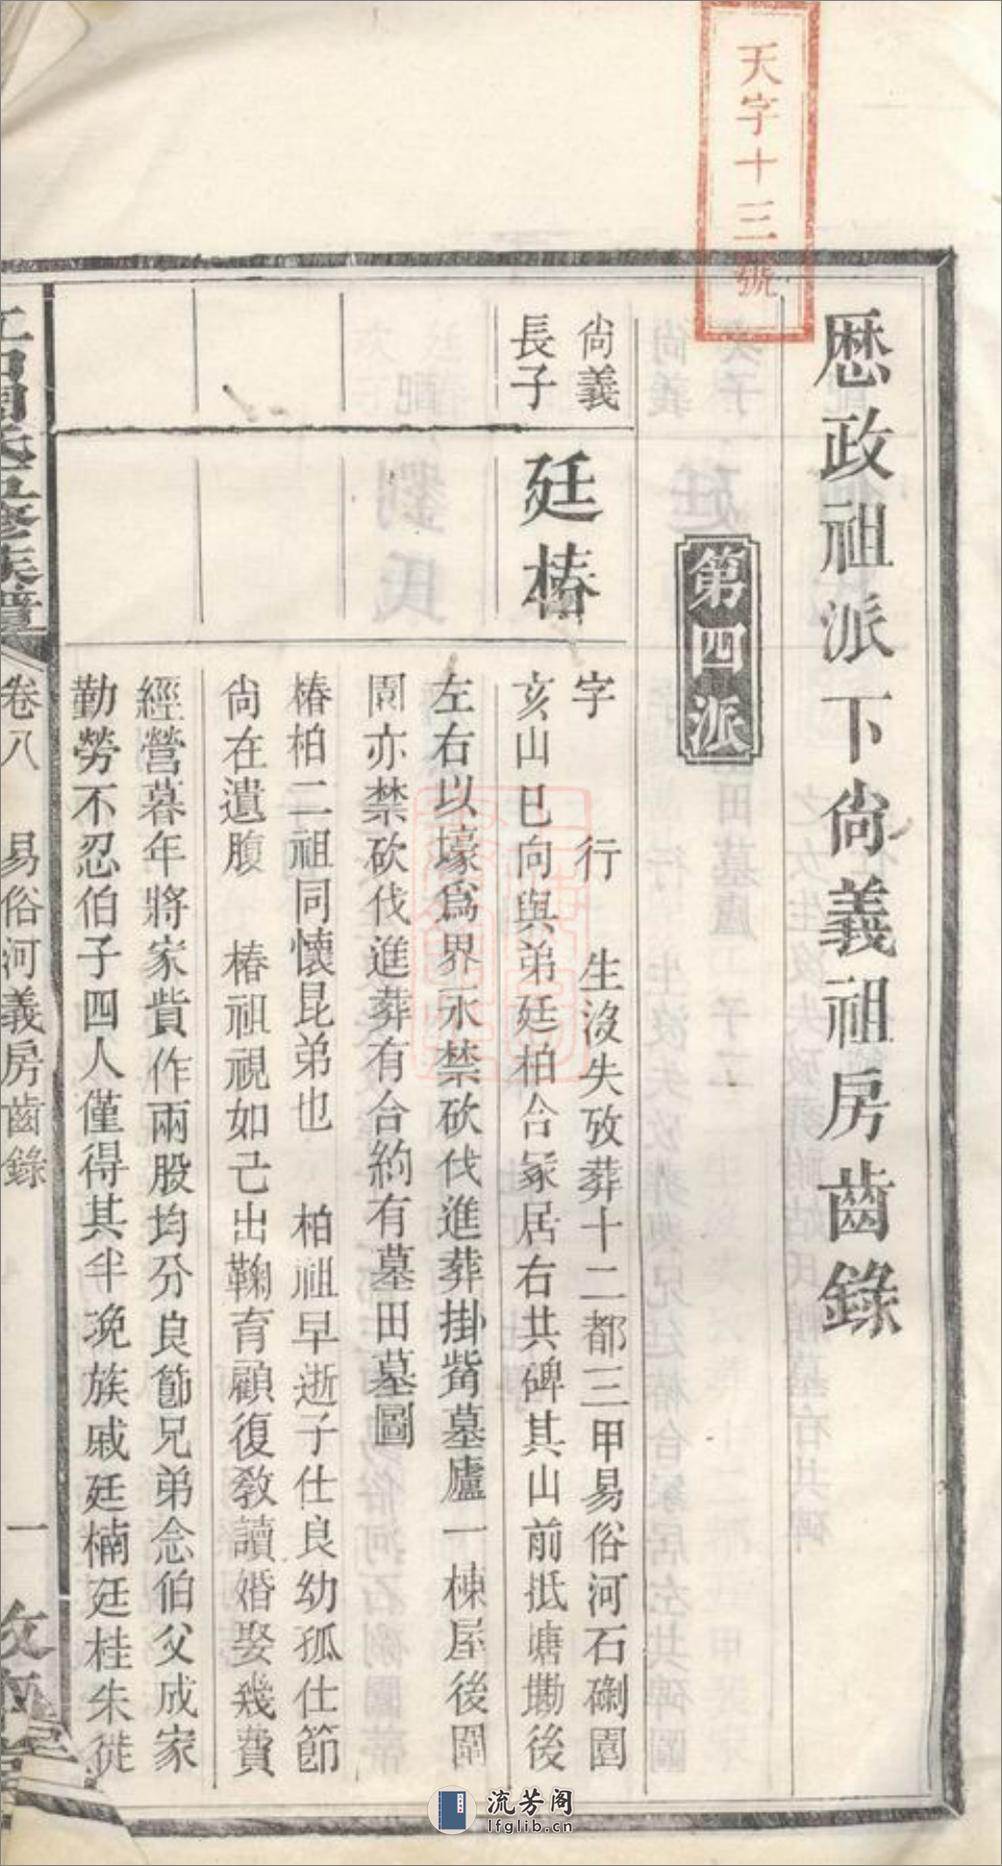 天字十三號
歷政祖派下尙義祖房齒錄
第四派
尙義
長子
廷椿
字 行 生沒失攷葬十二都三甲易俗河石磡園
亥山巳向與弟廷柏合冢居右共碑其山前抵塘磡後
左右以壕爲界永禁砍伐進葬掛觜墓廬一棟屋後園
園亦禁砍伐進葬有合約有墓田墓圖
椿柏二祖同懷昆弟也 柏祖早逝子仕良幼孤仕節
尙在遺腹 椿祖視如己出鞠育顧復敎讀婚娶幾費
經營暮年將家貲作兩股均分良節兄弟念伯父成家
勤勞不忍伯子四人僅得其半浼族戚廷楠廷桂朱徙
五修族譜
卷八 易俗河義房齒錄
一
流芳阁
lfglib.cn